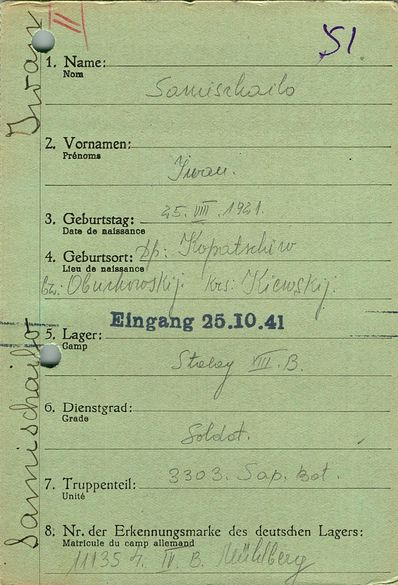 II
51
1. Name:
Nom
Samischailo
2. Vornamen:
Prénoms
Iwan.
3. Geburtstag: 25. VIII. 1921.
Date de naissance
4. Geburtsort: Kopatschiw
Lieu de naissance
Obuchowskij. Krs: Kiewskij.
Eingang 25.10.41
5. Lager:
Camp
Stalag VIII. B.
6. Dienstgrad:
Grade
Soldat.
7. Truppenteil: 3303. Sap. bat.
Unité
8. Nr. der Erkennungsmarke des deutschen Lagers:
Matricule du camp allemand
IV. B. Mühlberg
Samischailo Iwan